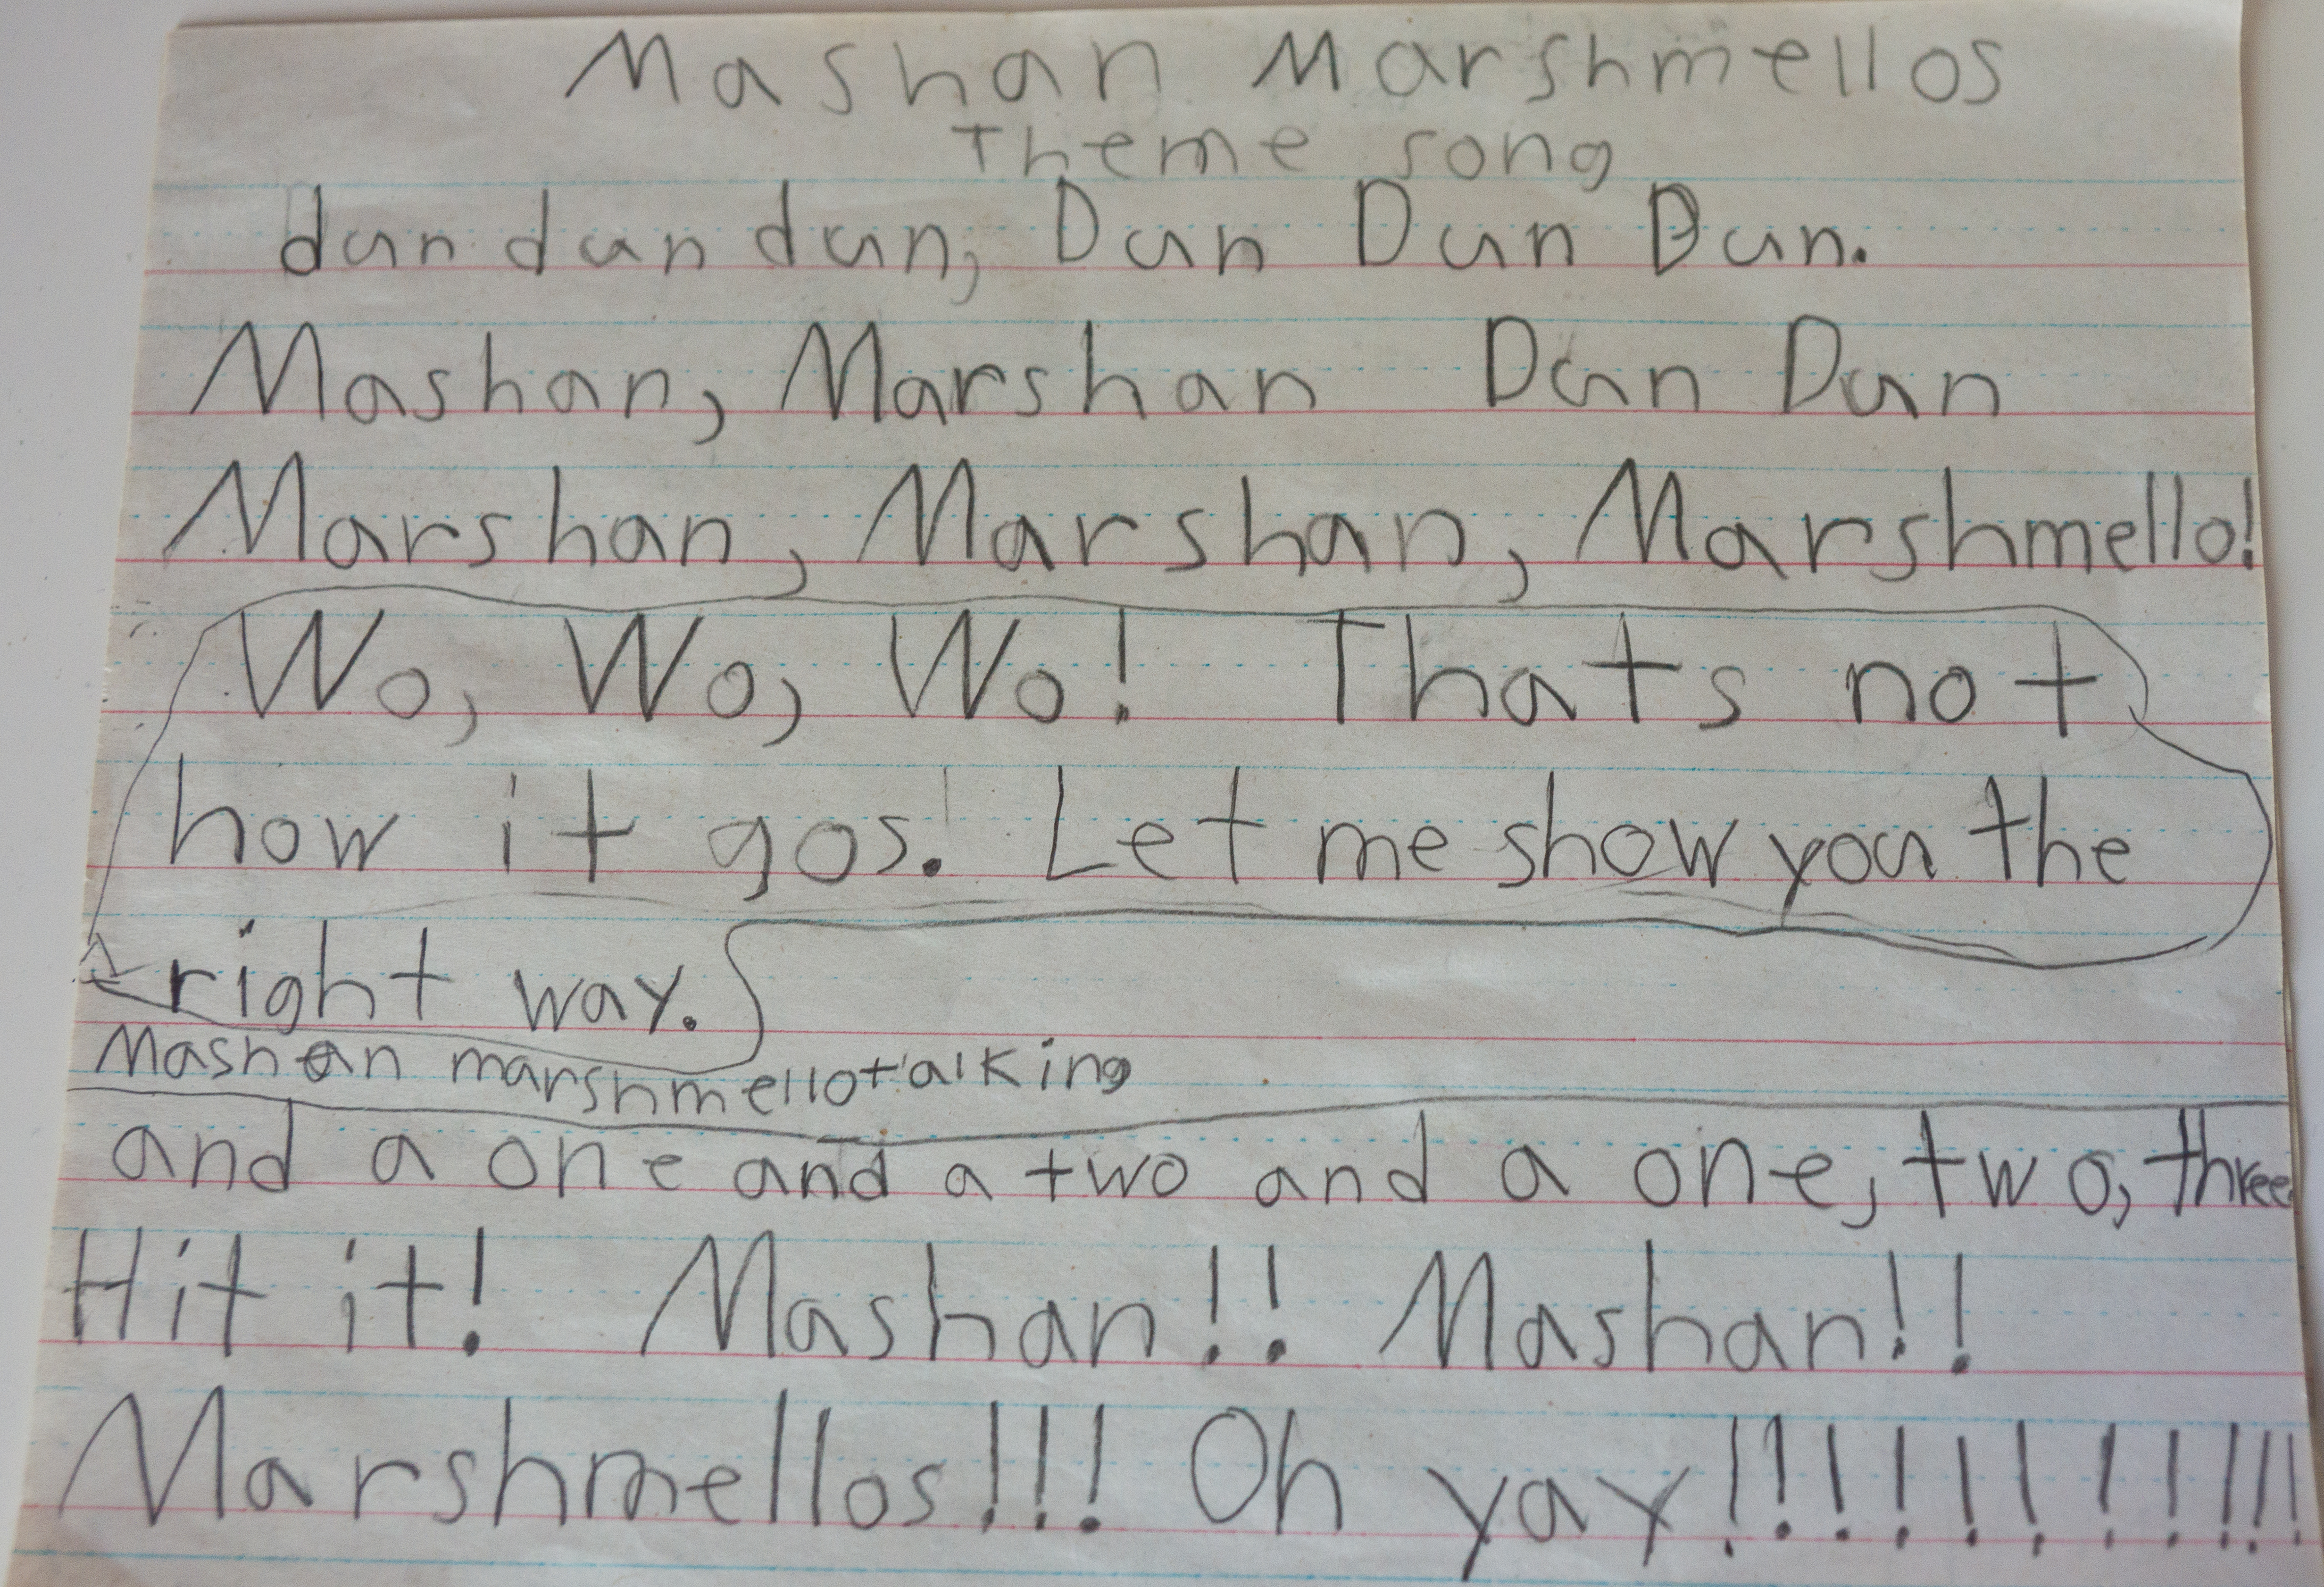 Mashan Marshmellos
Theme song
dun dun dun, Dun Dun Dun.
Mashan, Marshan Dun Dun
Marshan, Marshan, Marshmello!
Wo, Wo, Wo! Thats not
how it gos. Let me show you the
right way.
Mashan marshmello talking
and a one and a two and a one, two, three
Hit it! Mashan!! Mashan!!
Marshmellos!!! Oh yay!!!!!!!!!!!